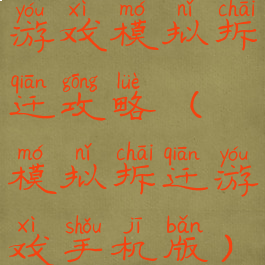 yóu xì mó nǐ chāi
游戏模拟拆
qiān gōng lüè
迁攻略（
mó nǐ chāi qiān yóu
模拟拆迁游
xì shǒu jī bǎn
戏手机版）